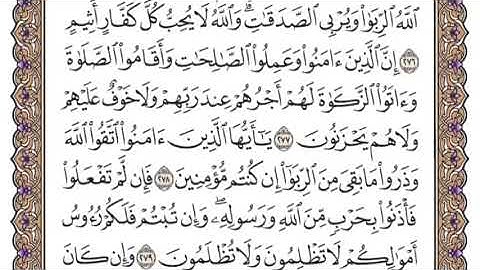 ٱللَّهُ ٱلرِّبَوٰا۟ وَيُرْبِى ٱلصَّدَقَٰتِ ۗ وَٱللَّهُ لَا يُحِبُّ كُلَّ كَفَّارٍ أَثِيمٍ
٢٧٦ إِنَّ ٱلَّذِينَ ءَامَنُوا۟ وَعَمِلُوا۟ ٱلصَّٰلِحَٰتِ وَأَقَامُوا۟ ٱلصَّلَوٰةَ
وَءَاتَوُا۟ ٱلزَّكَوٰةَ لَهُمْ أَجْرُهُمْ عِندَ رَبِّهِمْ وَلَا خَوْفٌ عَلَيْهِمْ
وَلَا هُمْ يَحْزَنُونَ ٢٧٧ يَٰٓأَيُّهَا ٱلَّذِينَ ءَامَنُوا۟ ٱتَّقُوا۟ ٱللَّهَ
وَذَرُوا۟ مَا بَقِىَ مِنَ ٱلرِّبَوٰٓا۟ إِن كُنتُم مُّؤْمِنِينَ ٢٧٨ فَإِن لَّمْ تَفْعَلُوا۟
فَأْذَنُوا۟ بِحَرْبٍ مِّنَ ٱللَّهِ وَرَسُولِهِۦ ۖ وَإِن تُبْتُمْ فَلَكُمْ رُءُوسُ
أَمْوَٰلِكُمْ لَا تَظْلِمُونَ وَلَا تُظْلَمُونَ ٢٧٩ وَإِن كَانَ